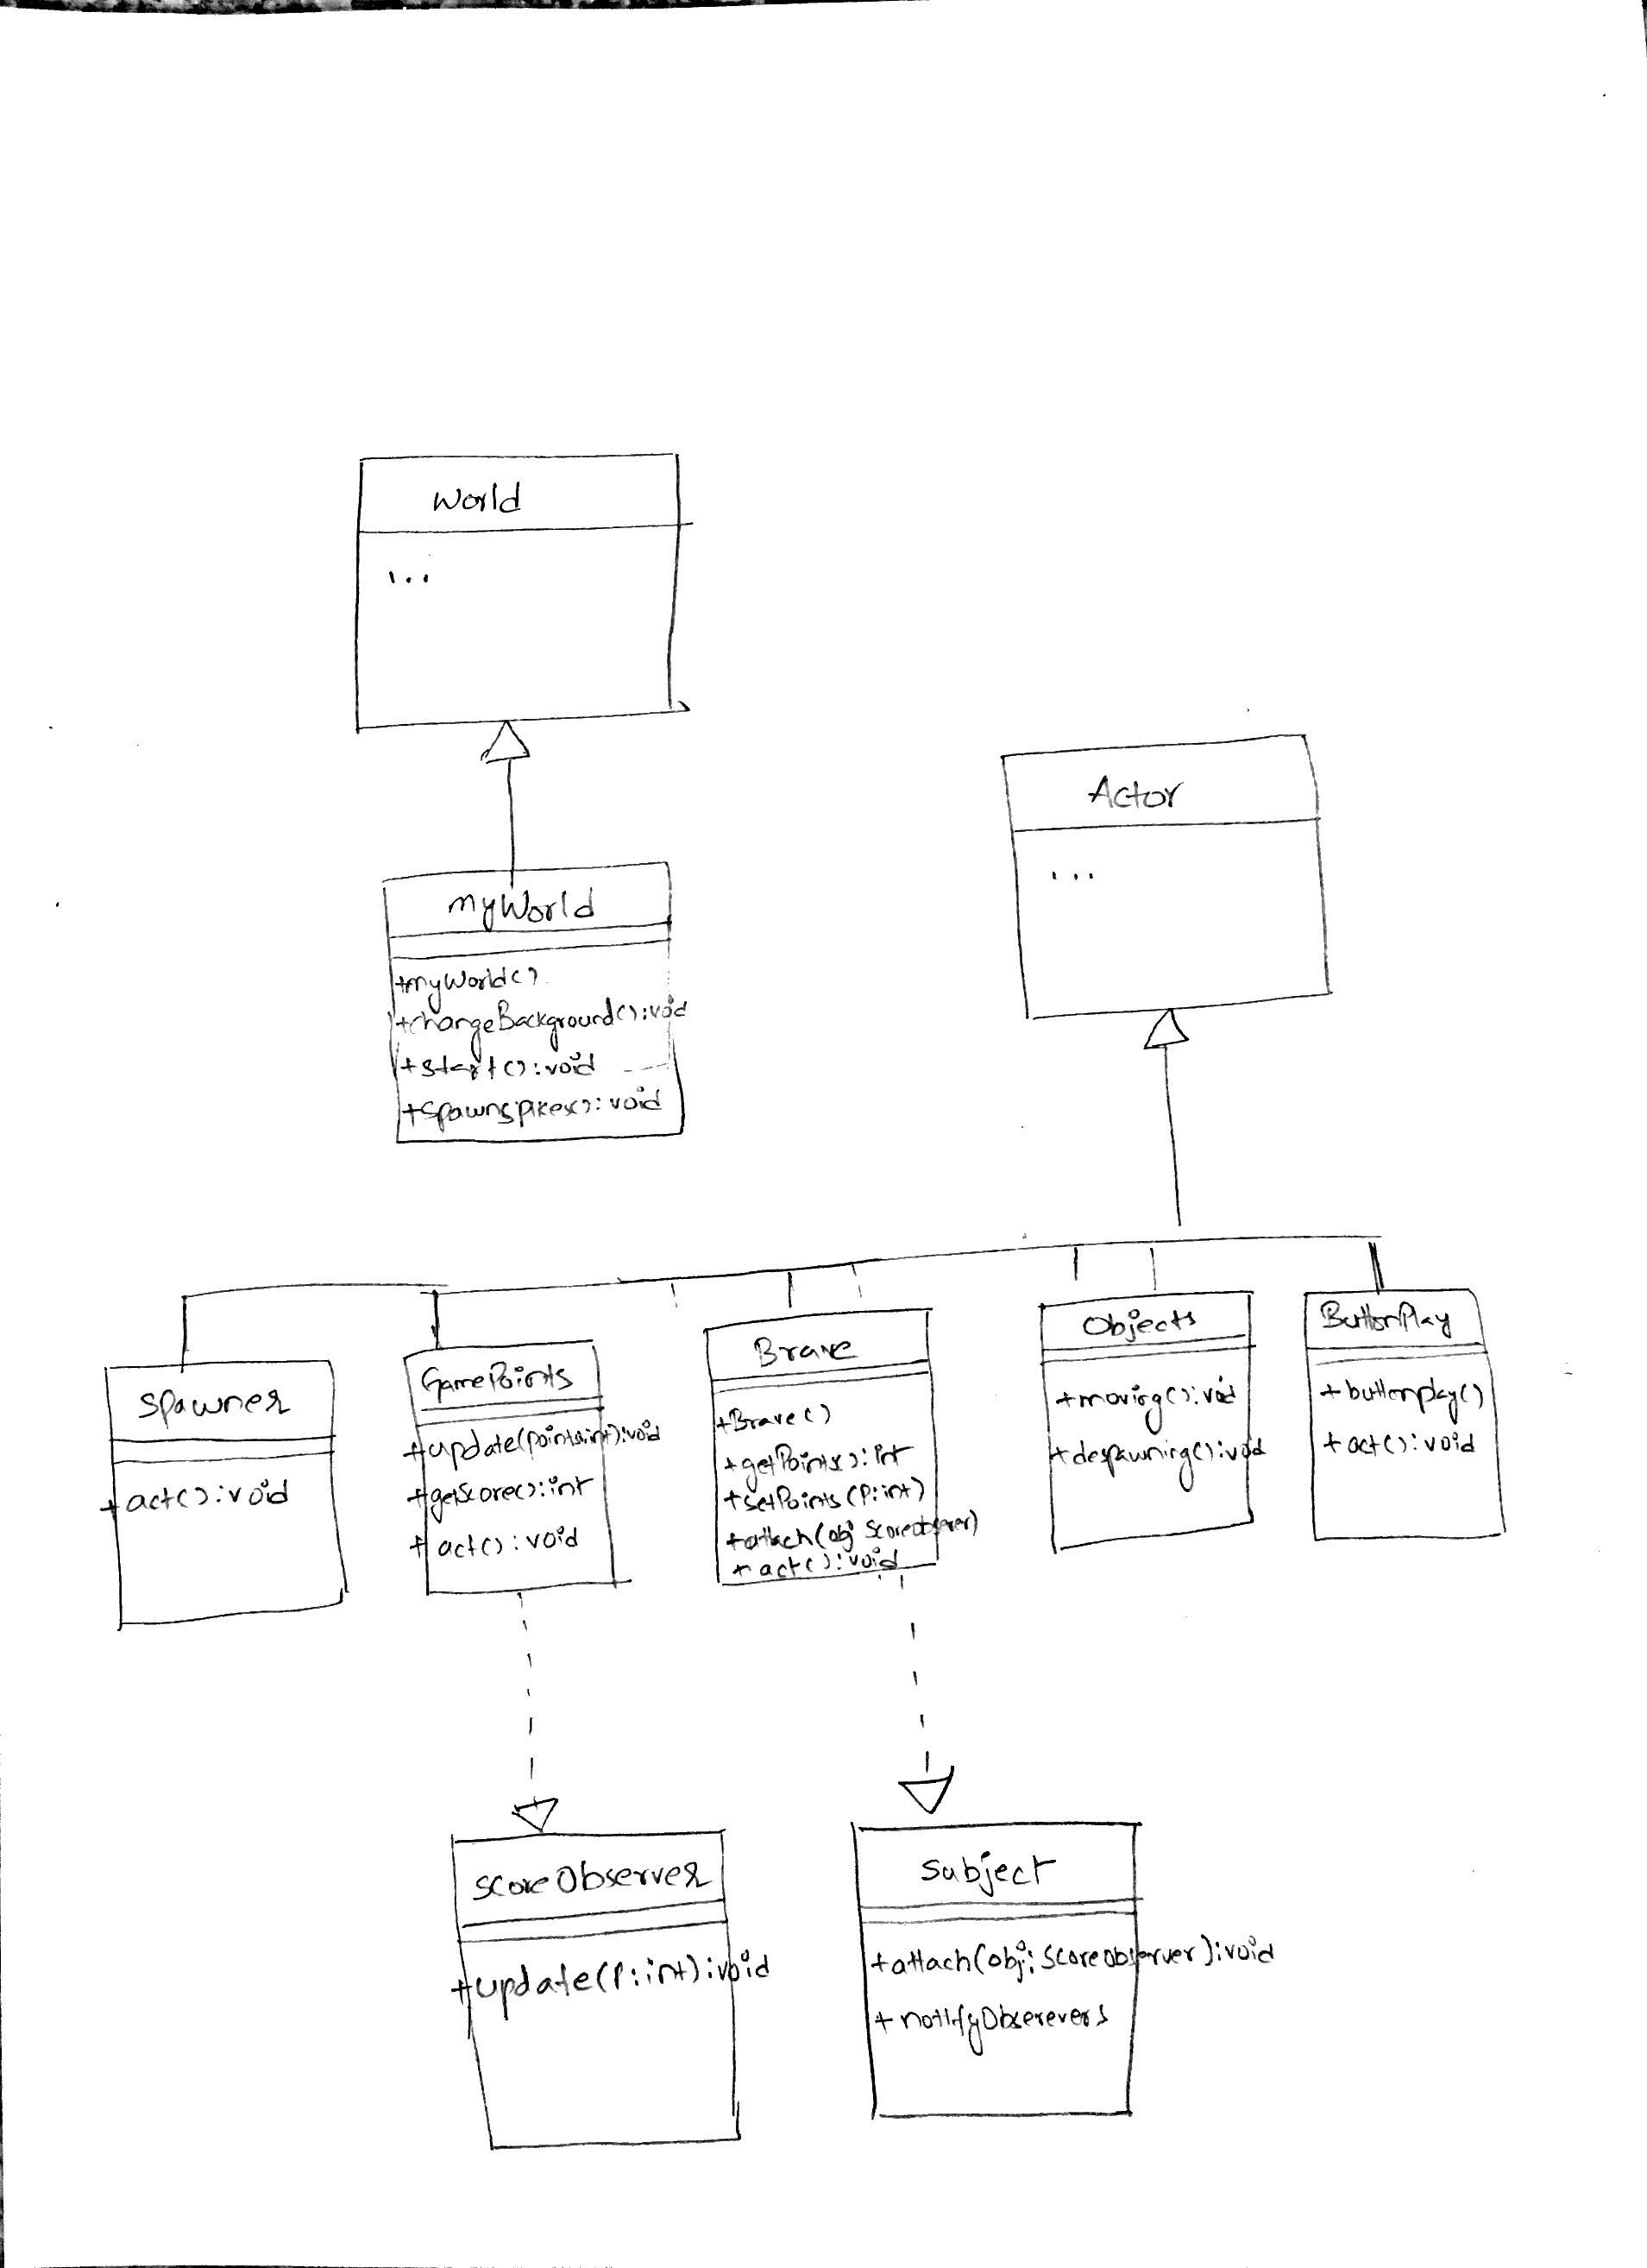 World
...
Actor
...
myWorld
+myWorld()
+changeBackground():void
+start():void
+spawnspikes():void
Spawner
+act():void
GamePoints
+update(points:int):void
+getScore():int
+act():void
Brave
+Brave()
+getPoints():int
+setPoints(P:int)
+attach(obj: Scoreobserver)
+act():void
Objects
+moving():void
+despawning():void
ButtonPlay
+buttonplay()
+act():void
scoreObserver
+update(P:int):void
Subject
+attach(obj: Scoreobserver):void
+notifyObserevers